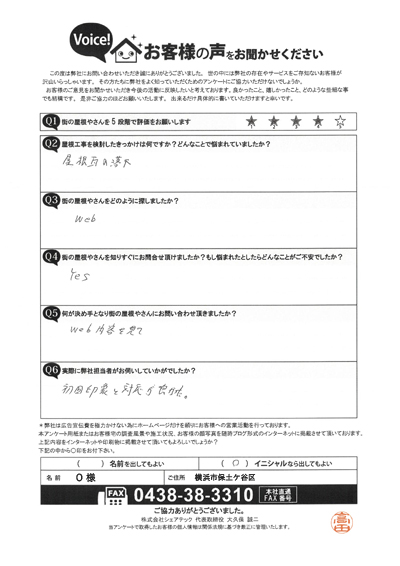 Voice!
お客様の声をお聞かせください
この度は弊社にお問い合わせいただき誠にありがとうございました。世の中には弊社の存在やサービスをご存知ないお客様が
沢山いらっしゃいます。その方たちに弊社をよく知っていただくためのアンケートにご協力いただけないでしょうか。
お客様のご意見をお聞かせいただき今後の活動に反映したいと考えております。良かったこと、嬉しかったこと、どのような些細な事
でも結構です。是非ご協力のほどお願いいたします。出来るだけ具体的に書いていただけますと幸いです。
Q1 街の屋根やさんを5段階で評価をお願いします ★ ★ ★ ★ ☆
Q2 屋根工事を検討したきっかけは何ですか？どんなことで悩まれていましたか？
屋根瓦の落下
Q3 街の屋根やさんをどのように探しましたか？
web
Q4 街の屋根やさんを知りすぐにお問合せ頂けましたか？もし悩まれたとしたらどんなことがご不安でしたか？
Yes
Q5 何が決め手となり街の屋根やさんにお問い合わせ頂きましたか？
web内容を見て
Q6 実際に弊社担当者がお伺いしていかがでしたか？
初回印象と対応が良かった。
＊弊社は広告宣伝費を極力かけない為にホームページだけを頼りにお客様への営業活動を行っております。
本アンケート用紙またはお客様宅の調査風景や施工状況、お客様の顔写真を随時ブログ形式のインターネットに掲載させて頂いております。
上記内容をインターネットや印刷物に掲載させて頂いてもよろしいでしょうか？
下記の中から〇印をお付け下さい。
（ ）名前を出してもよい （ 〇 ）イニシャルなら出してもよい
名前 O 様 ご住所 横浜市保土ケ谷区
FAX 0438-38-3310 本社直通 FAX番号
ご協力ありがとうございました。
株式会社シェアテック 代表取締役 大久保 誠二
当アンケートで取得したお客様の個人情報は関係法規に基づき厳正に管理いたします。